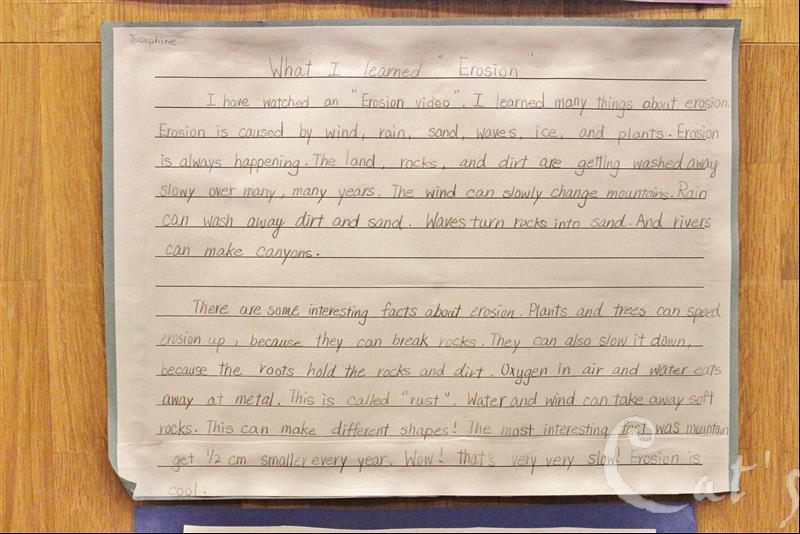 Josephine
What I learned "Erosion"
I have watched an "Erosion video". I learned many things about erosion.
Erosion is caused by wind, rain, sand, waves, ice, and plants. Erosion
is always happening. The land, rocks, and dirt are getting washed away
slowy over many, many years. The wind can slowly change mountains. Rain
can wash away dirt and sand. Waves turn rocks into sand. And rivers
can make canyons.
There are some interesting facts about erosion. Plants and trees can speed
erosion up, because they can break rocks. They can also slow it down,
because the roots hold the rocks and dirt. Oxygen in air and water eats
away at metal. This is called "rust". Water and wind can take away soft
rocks. This can make different shapes! The most interesting fact was mountain
get 1/2 cm smaller every year. Wow! that's very very slow! Erosion is
cool.
Cat's